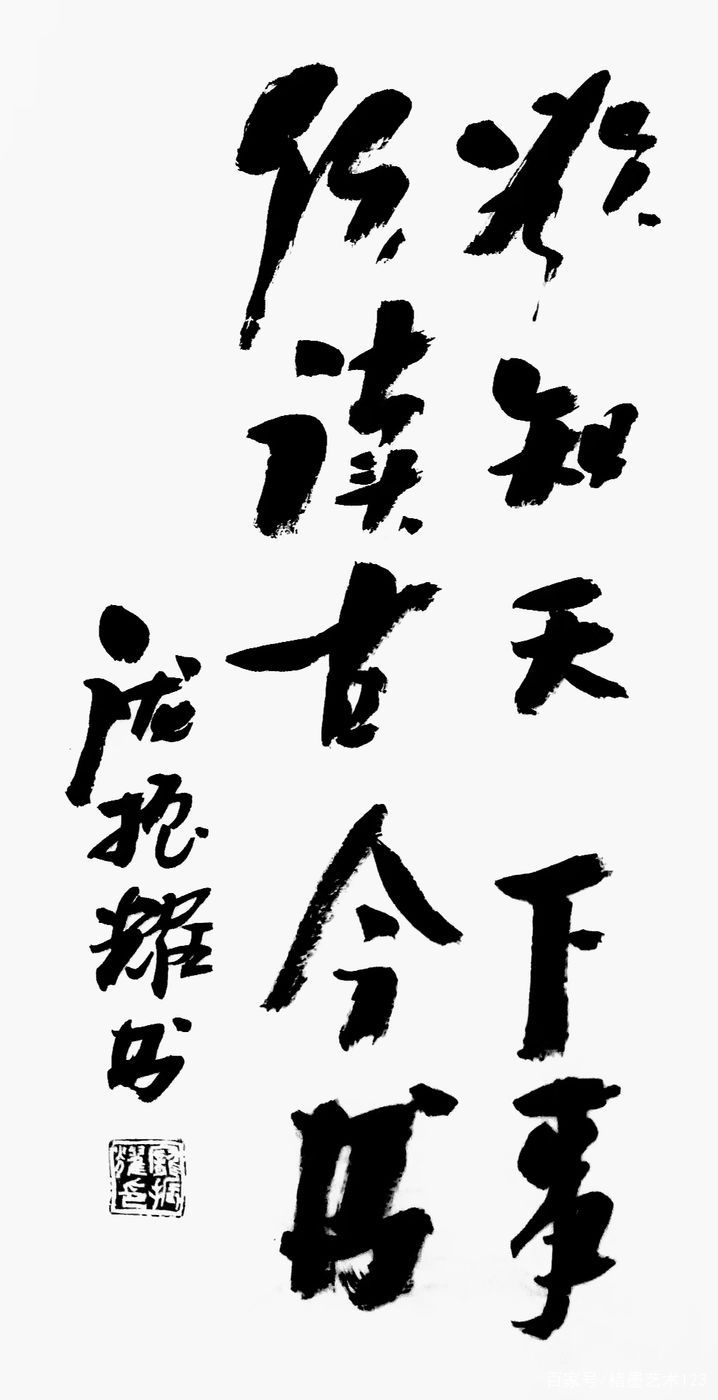 欲知天下事
须读古今书
庞振耀书
龐振
耀印
百家号/艺术123